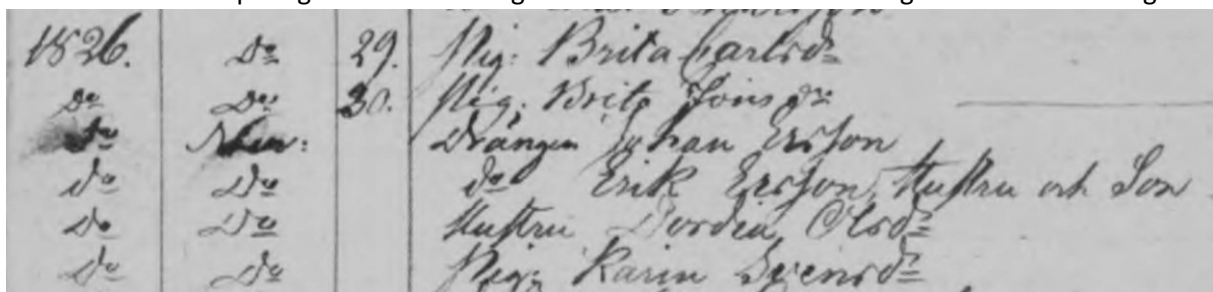 1826. Do 29. Pig: Brita Carlsdr
Do Do 30. Pig: Brita Jonsdr
Do Nov: Drängen Johan Ersson
do Do do Erik Ersson, Hustru och Son
Do Do Hustru Dordia Olsdr
Do Do Pig: Karin Svensdr